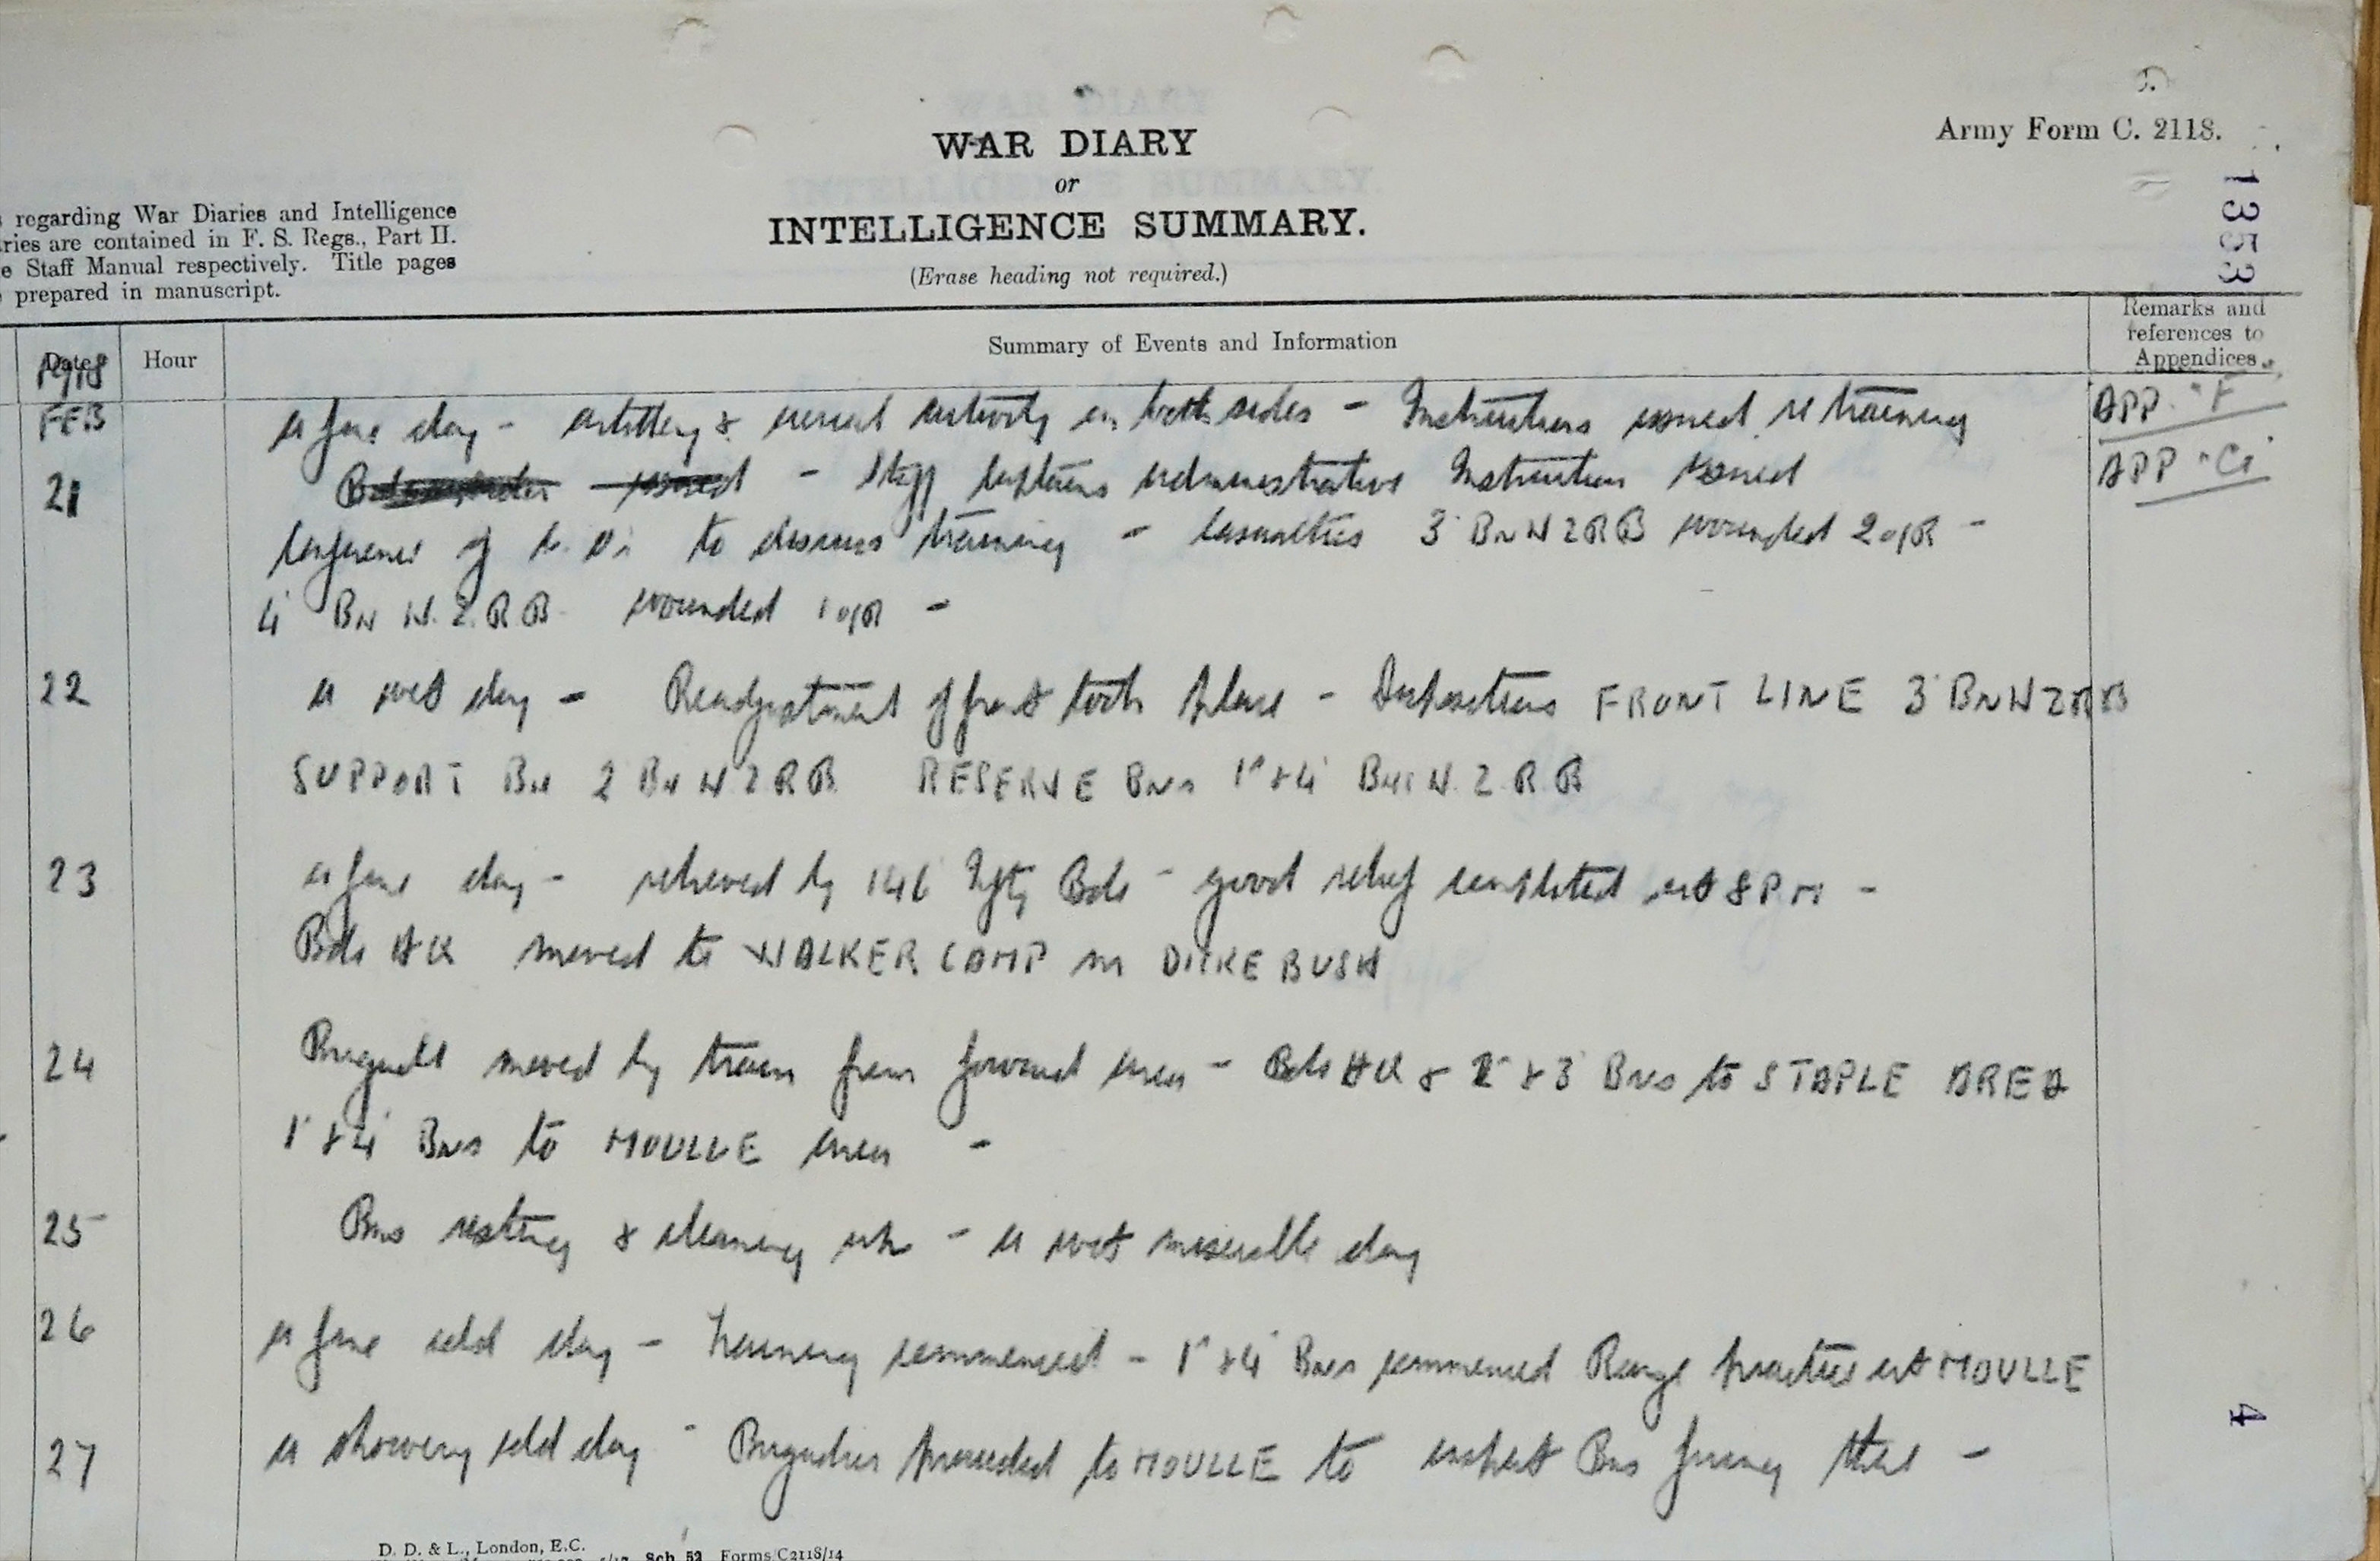 Army Form C. 2118.
1353
WAR DIARY
or
INTELLIGENCE SUMMARY.
(Erase heading not required.)
regarding War Diaries and Intelligence
ries are contained in F. S. Regs., Part II.
e Staff Manual respectively. Title pages
prepared in manuscript.
Date Hour Summary of Events and Information Remarks and references to Appendices.
1918
FEB a fine day - artillery & aerial activity on both sides - Instructions issued re training APP. "F
21 issued - Staff Captains administrative Instruction issued APP "G
Conference of C.O's to discuss training - Casualties 3 BN NZRB wounded 2 o/R -
4 BN N.Z.R.B. wounded 1 o/R -
22 a wet day - Readjustment of front took place - Dispositions FRONT LINE 3 BN NZRB
SUPPORT BN 2 BN NZRB. RESERVE BNs 1st & 4 BNs N.Z.R.B
23 a fine day - relieved by 146 Infty Bde - good relief completed at 8 PM -
Bde HQ moved to WALKER CAMP nr DICKEBUSH
24 Brigade moved by train from forward area - Bde HQ & 2 & 3 Bns to STAPLE AREA
1st & 4 Bns to MOULLE area -
25 Bns resting & cleaning up - a wet miserable day
26 a fine cold day - Training commenced - 1st & 4 Bns commenced Range practice at MOULLE
27 a showery cold day - Brigadier proceeded to MOULLE to inspect Bns firing there -
4
D. D. & L., London, E.C.
Sch. 52 Forms/C2118/14